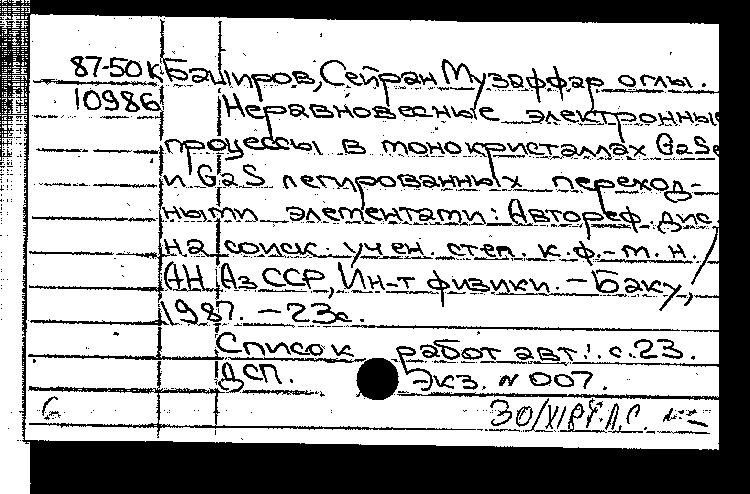 87-50к Баширов, Сейран Музаффар оглы.
10986 Неравновесные электронные
процессы в монокристаллах GaSe
и GaS легированных переход-
ными элементами: Автореф. дис.
на соиск. учен. степ. к.ф.-м.н. /
АН АзССР, Ин-т физики. - Баку,
1987. - 23с.
Список работ авт.: с.23.
ДСП. Экз. № 007.
6 30/XI 87. Л.С.